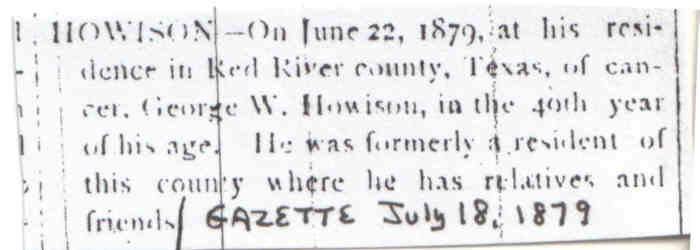 HOWISON—On June 22, 1879, at his resi-
dence in Red River county, Texas, of can-
cer, George W. Howison, in the 40th year
of his age. He was formerly a resident of
this county where he has relatives and
friends. GAZETTE July 18, 1879